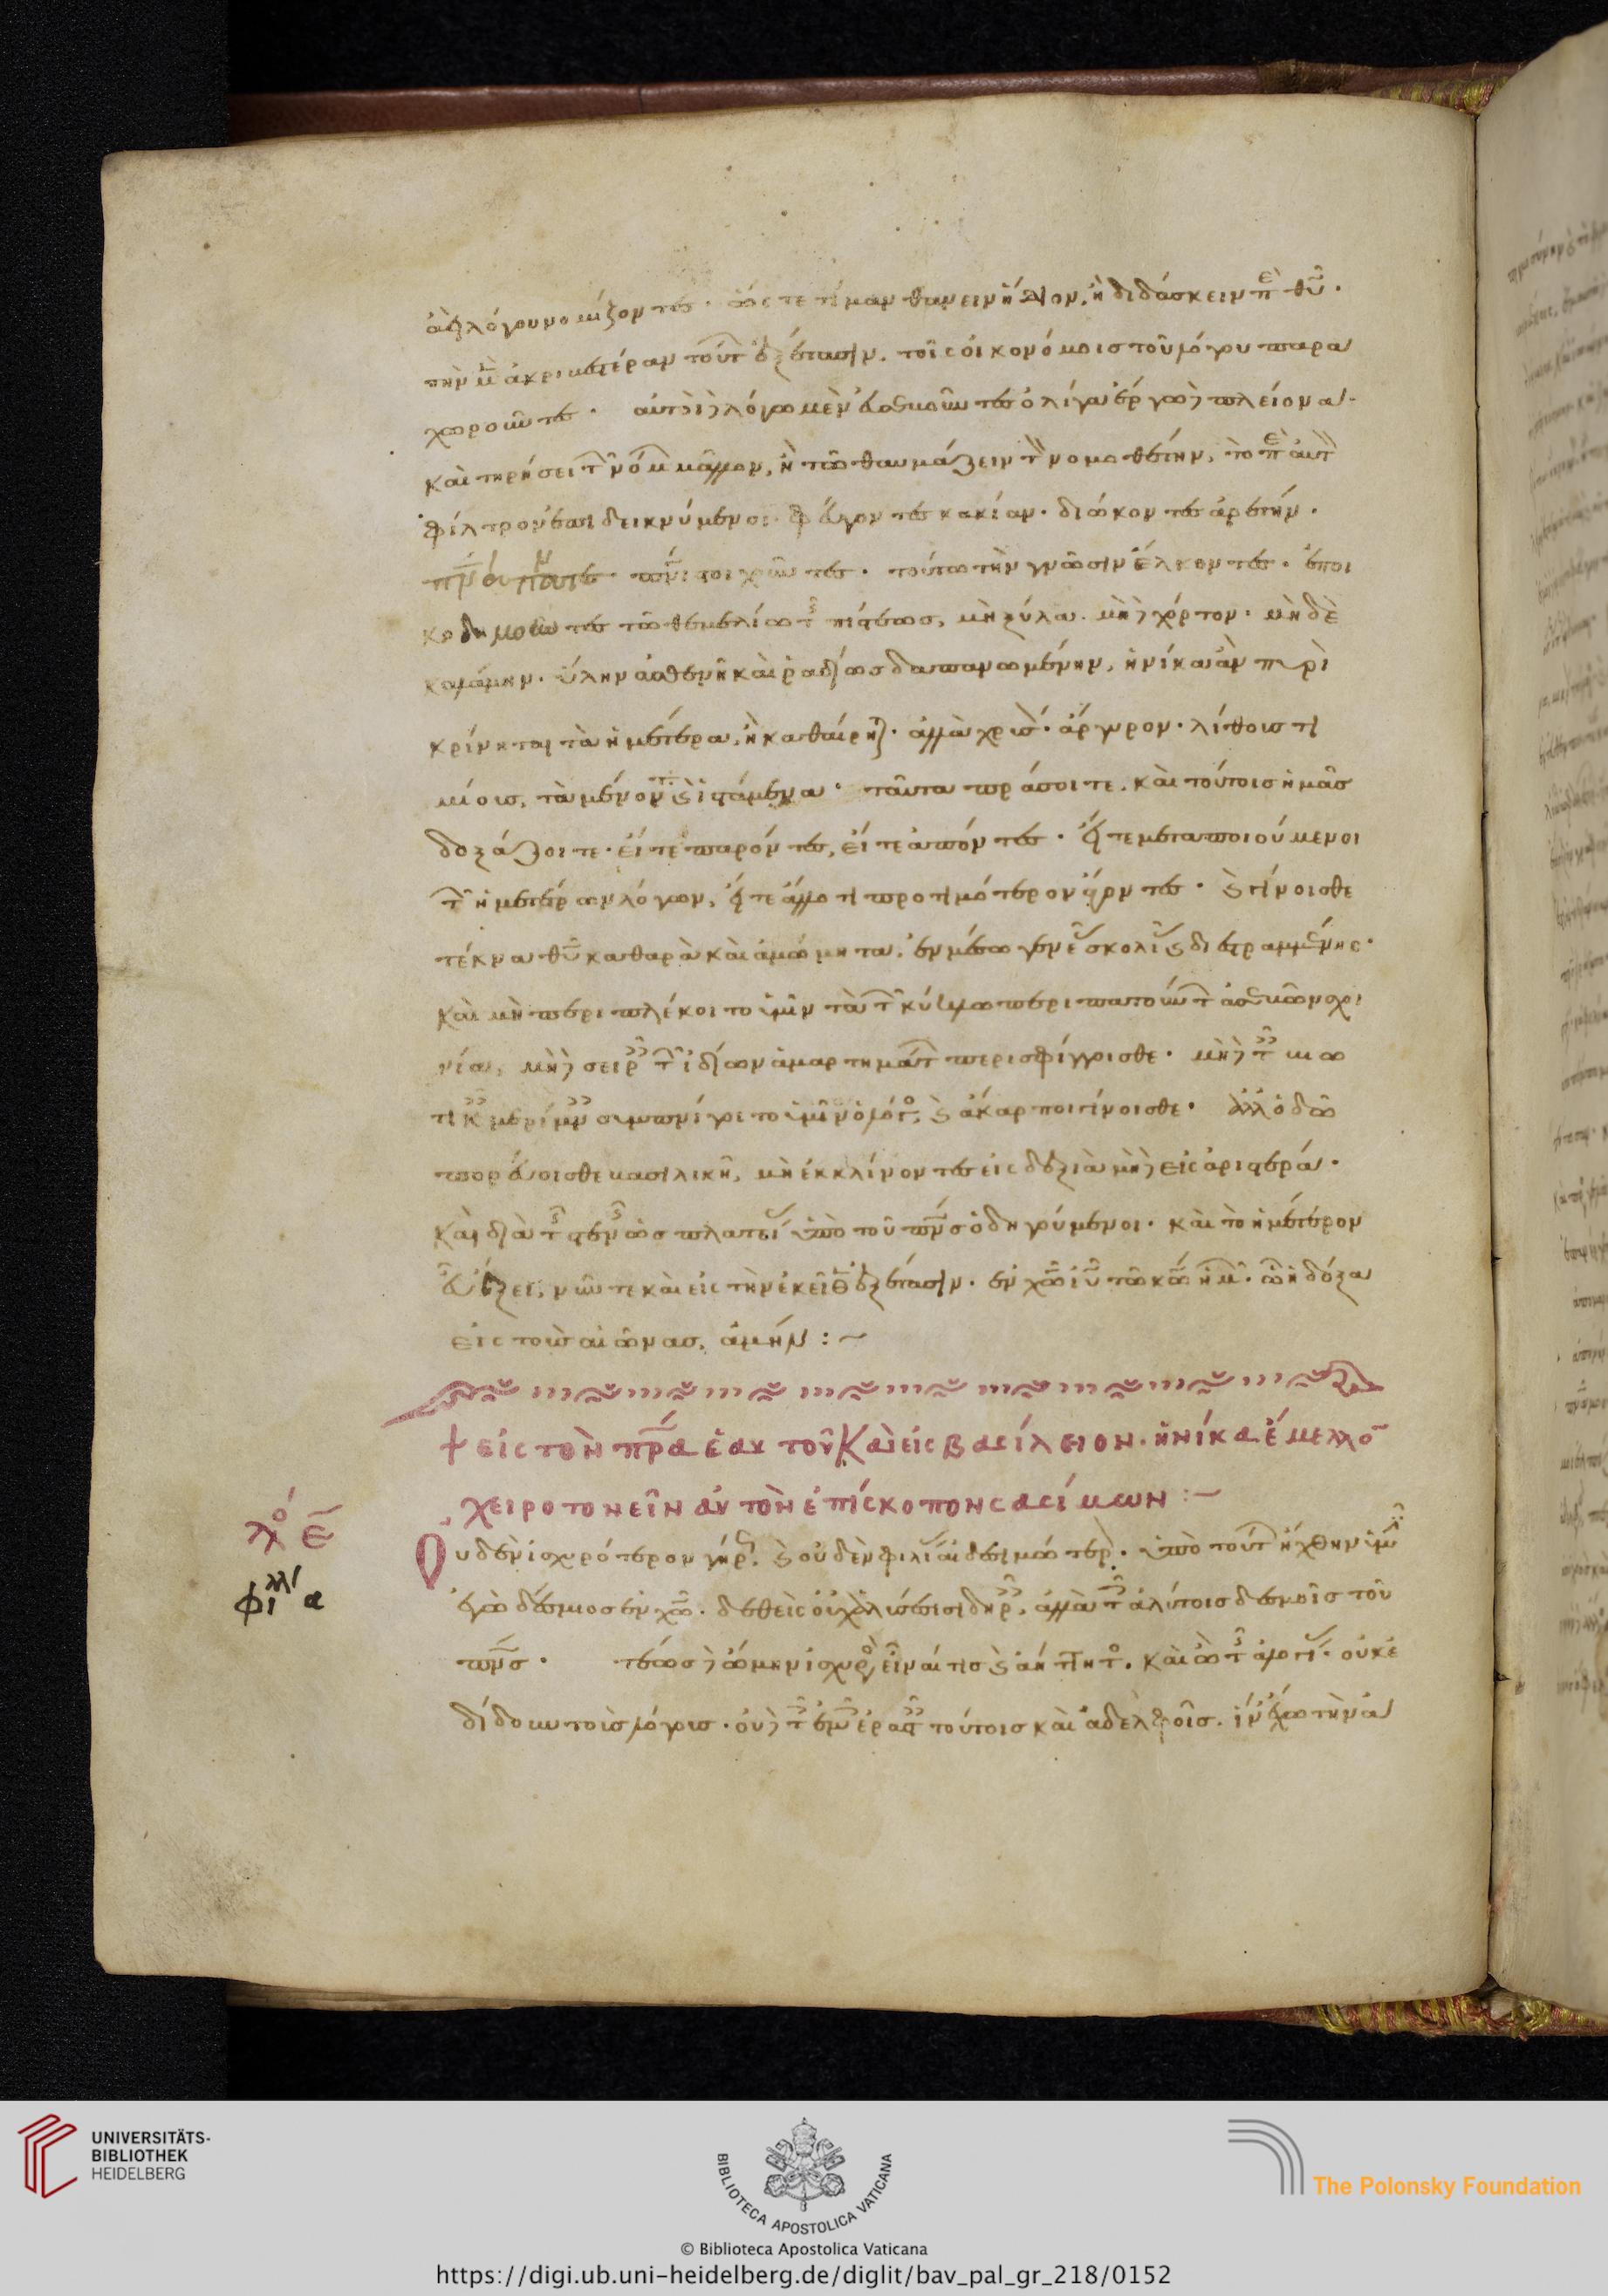 ἀξιολόγου νομίζοντες· ὥστε τί μανθάνειν ἢ λέγειν, ἢ διδάσκειν περὶ θῦ·
τὴν ἀκριβεστέραν τούτων ἐξέτασιν, τοῖς οἰκονόμοις τοῦ λόγου παρα
χωροῦντες· αὐτοὶ δὲ λόγῳ μὲν εὐσεβοῦντες ὀλίγα ἔργῳ δὲ πλείονα·
καὶ τηρήσει τῶν νόμων μᾶλλον, ἢ τῷ θαυμάζειν τὸν νομοθέτην, τὸ περὶ αὐτὸν
φίλτρον ἐπιδεικνύμενοι· φεύγοντες κακίαν· διώκοντες ἀρετήν·
πνι στοιχοῦντες· τούτῳ τὴν γνῶσιν ἕλκοντες· ἐποι
κοδομοῦντες τῷ θεμελίῳ τῆς πίστεως, μὴ ξύλα· μὴ δὲ χόρτον· μὴ δὲ
καλάμην· ὕλην ἀσθενῆ καὶ ῥαδίως δαπανωμένην, ἡνίκα ἂν πυρὶ
κρίνηται τὰ ἡμέτερα, ἢ καθαίρηται· ἀλλὰ χρυσόν· ἄργυρον· λίθους τι
μίους, τὰ μένοντα καὶ ἱστάμενα· ταῦτα πράσοιτε, καὶ τούτοις ἡμᾶς
δοξάζοιτε· εἴτε παρόντες, εἴτε ἀπόντες· εἴτε μεταποιούμενοι
τῶν ἡμετέρων λόγων, εἴτε ἄλλο τι προτιμότερον ἔχοντες· καὶ γίνοισθε
τέκνα θῦ καθαρὰ καὶ ἀμώμητα, ἐν μέσῳ γενεᾶς σκολιᾶς καὶ διεστραμμένης·
καὶ μὴ περιπλέκοιτο ὑμῖν τὰ τῶν κύκλῳ περιπατούντων ἀσεβῶν σχοι
νία, μὴ δὲ σειραῖς τῶν ἰδίων ἁμαρτημάτων περισφίγγοισθε· μὴ δὲ ταῖς βιω
τικαῖς μερίμναις συμπνίγοιτο ὑμῖν ὁ λόγος, καὶ ἄκαρποι γίνοισθε· ἀλλ' ὁδῷ
πορεύοισθε βασιλικῇ, μὴ ἐκκλίνοντες εἰς δεξιὰ μὴ δὲ εἰς ἀριστερά·
καὶ διὰ τῆς στενῆς ὡς πλατείας ὑπὸ τοῦ πνς ὁδηγούμενοι· καὶ τὸ ἡμέτερον
εὖ ἕξει, νῦν τε καὶ εἰς τὴν ἐκεῖθεν ἐξέτασιν· ἐν χῶ ἰῦ τῷ κῶ ἡμῶν· ᾧ ἡ δόξα
εἰς τοὺς αἰῶνας, ἀμήν :~
+ εἰς τὸν πρα ἑαυτοῦ καὶ εἰς βασίλειον· ἡνίκα ἔμελλον
χειροτονεῖν αὐτὸν ἐπίσκοπον σασίμων :—
λο ε
φιλλι α
Οὐδὲν ἰσχυρότερον γήρως, καὶ οὐδὲν φιλίας αἰδεσιμώτερον· ὑπὸ τούτων ἤχθην ὑμῖν
ἐγὼ δέσμιος ἐν χῶ· δεθεὶς οὐχ ἁλύσεσι σιδηραῖς, ἀλλὰ τοῖς ἀλύτοις δεσμοῖς τοῦ
πνς· τέως δὲ ᾤμην ἰσχυρὸς εἶναί τις καὶ ἀήττητος· καὶ ὢ τῆς ἀλογίας· οὐκ ἐ
δίδουν τοῖς λόγοις· οὐδὲ τοῖς ἐμοῖς ἐρασταῖς τούτοις καὶ ἀδελφοῖς· ἵν' ἔχω τὴν ἀ
UNIVERSITÄTS-
BIBLIOTHEK
HEIDELBERG
BIBLIOTECA APOSTOLICA VATICANA
The Polonsky Foundation
© Biblioteca Apostolica Vaticana
https://digi.ub.uni-heidelberg.de/diglit/bav_pal_gr_218/0152